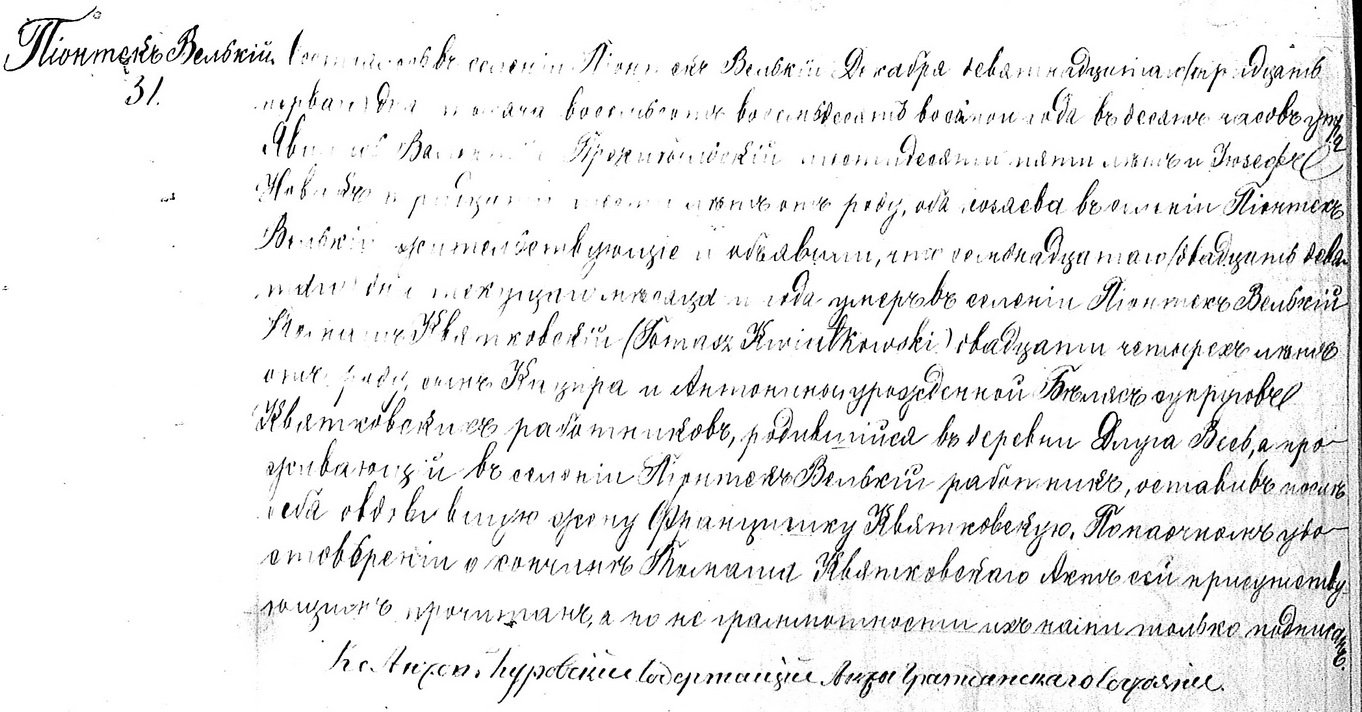 Піонтекъ Велькій
31.
Состоялось въ селеніи Піонтекъ Велькій Декабря девятнадцатаго/тридцать
перваго дня тысяча восемьсотъ восемьдесятъ года въ десять часовъ утра
Явились Валентій шестидесяти пяти лѣтъ и Іюзефъ
Новакъ тридцати лѣтъ отъ роду, оба хозяева въ селеніи Піонтекъ
Велькій жительствующіе и объявили, что семьнадцатаго/двадцать девя-
таго дня текущаго мѣсяца и года умеръ въ селеніи Піонтекъ Велькій
Томашъ Квятковскій (Tomasz Kwiatkowski) двадцати четырехъ лѣтъ
отъ роду, сынъ и Антонины урожденной Бѣлясъ супруговъ
Квятковскихъ работниковъ, родившійся въ деревни Длуга Весь, а про-
живающій въ селеніи Піонтекъ Велькій работникъ, оставивъ послѣ
себя овдовѣвшую жену Францишку Квятковскую. По настоящемъ удо-
стовѣреніи о кончинѣ Томаша Квятковскаго Актъ сей присутству-
ющимъ прочитанъ, а по неграмотности ихъ нами только подписанъ.
Кс. Содержащій Акты Гражданскаго Состоянія.